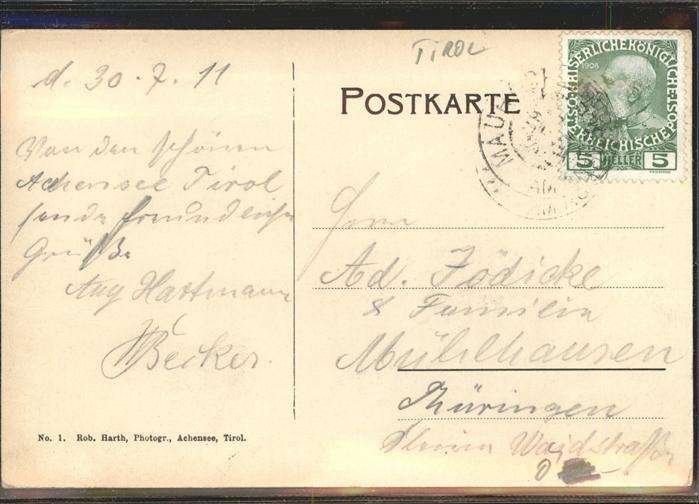 TIROL
d. 30.7.11
POSTKARTE
Von den schönen
Achensee Tirol
sende freundliche
Grüße
Aug Hartmann
Becker.
1908
KAISERLICHE KÖNIGLICHE
ÖSTERREICHISCHE
5 HELLER 5
MAU
Herrn
Ad. Jödicke
& Familie
Mühlhausen
Thüringen
Waidstraße
No. 1. Rob. Harth, Photogr., Achensee, Tirol.